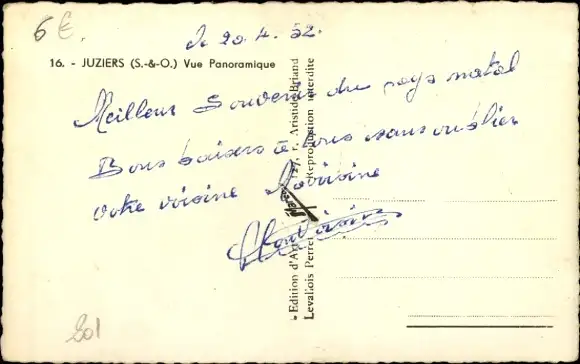 6 €.
le 20.4.52.
16. - JUZIERS (S.-&-O.) Vue Panoramique
Meilleur Souvenir du pays natal
Bons baisers à tous sans oublier
votre voisine
Edition d'Art 27, r. Aristide Briand
Levallois Perret Reproduction interdite
201